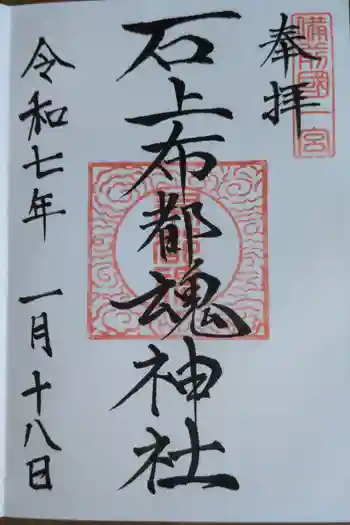 奉拝
備前國一宮
石上布都魂神社
令和七年 一月十八日